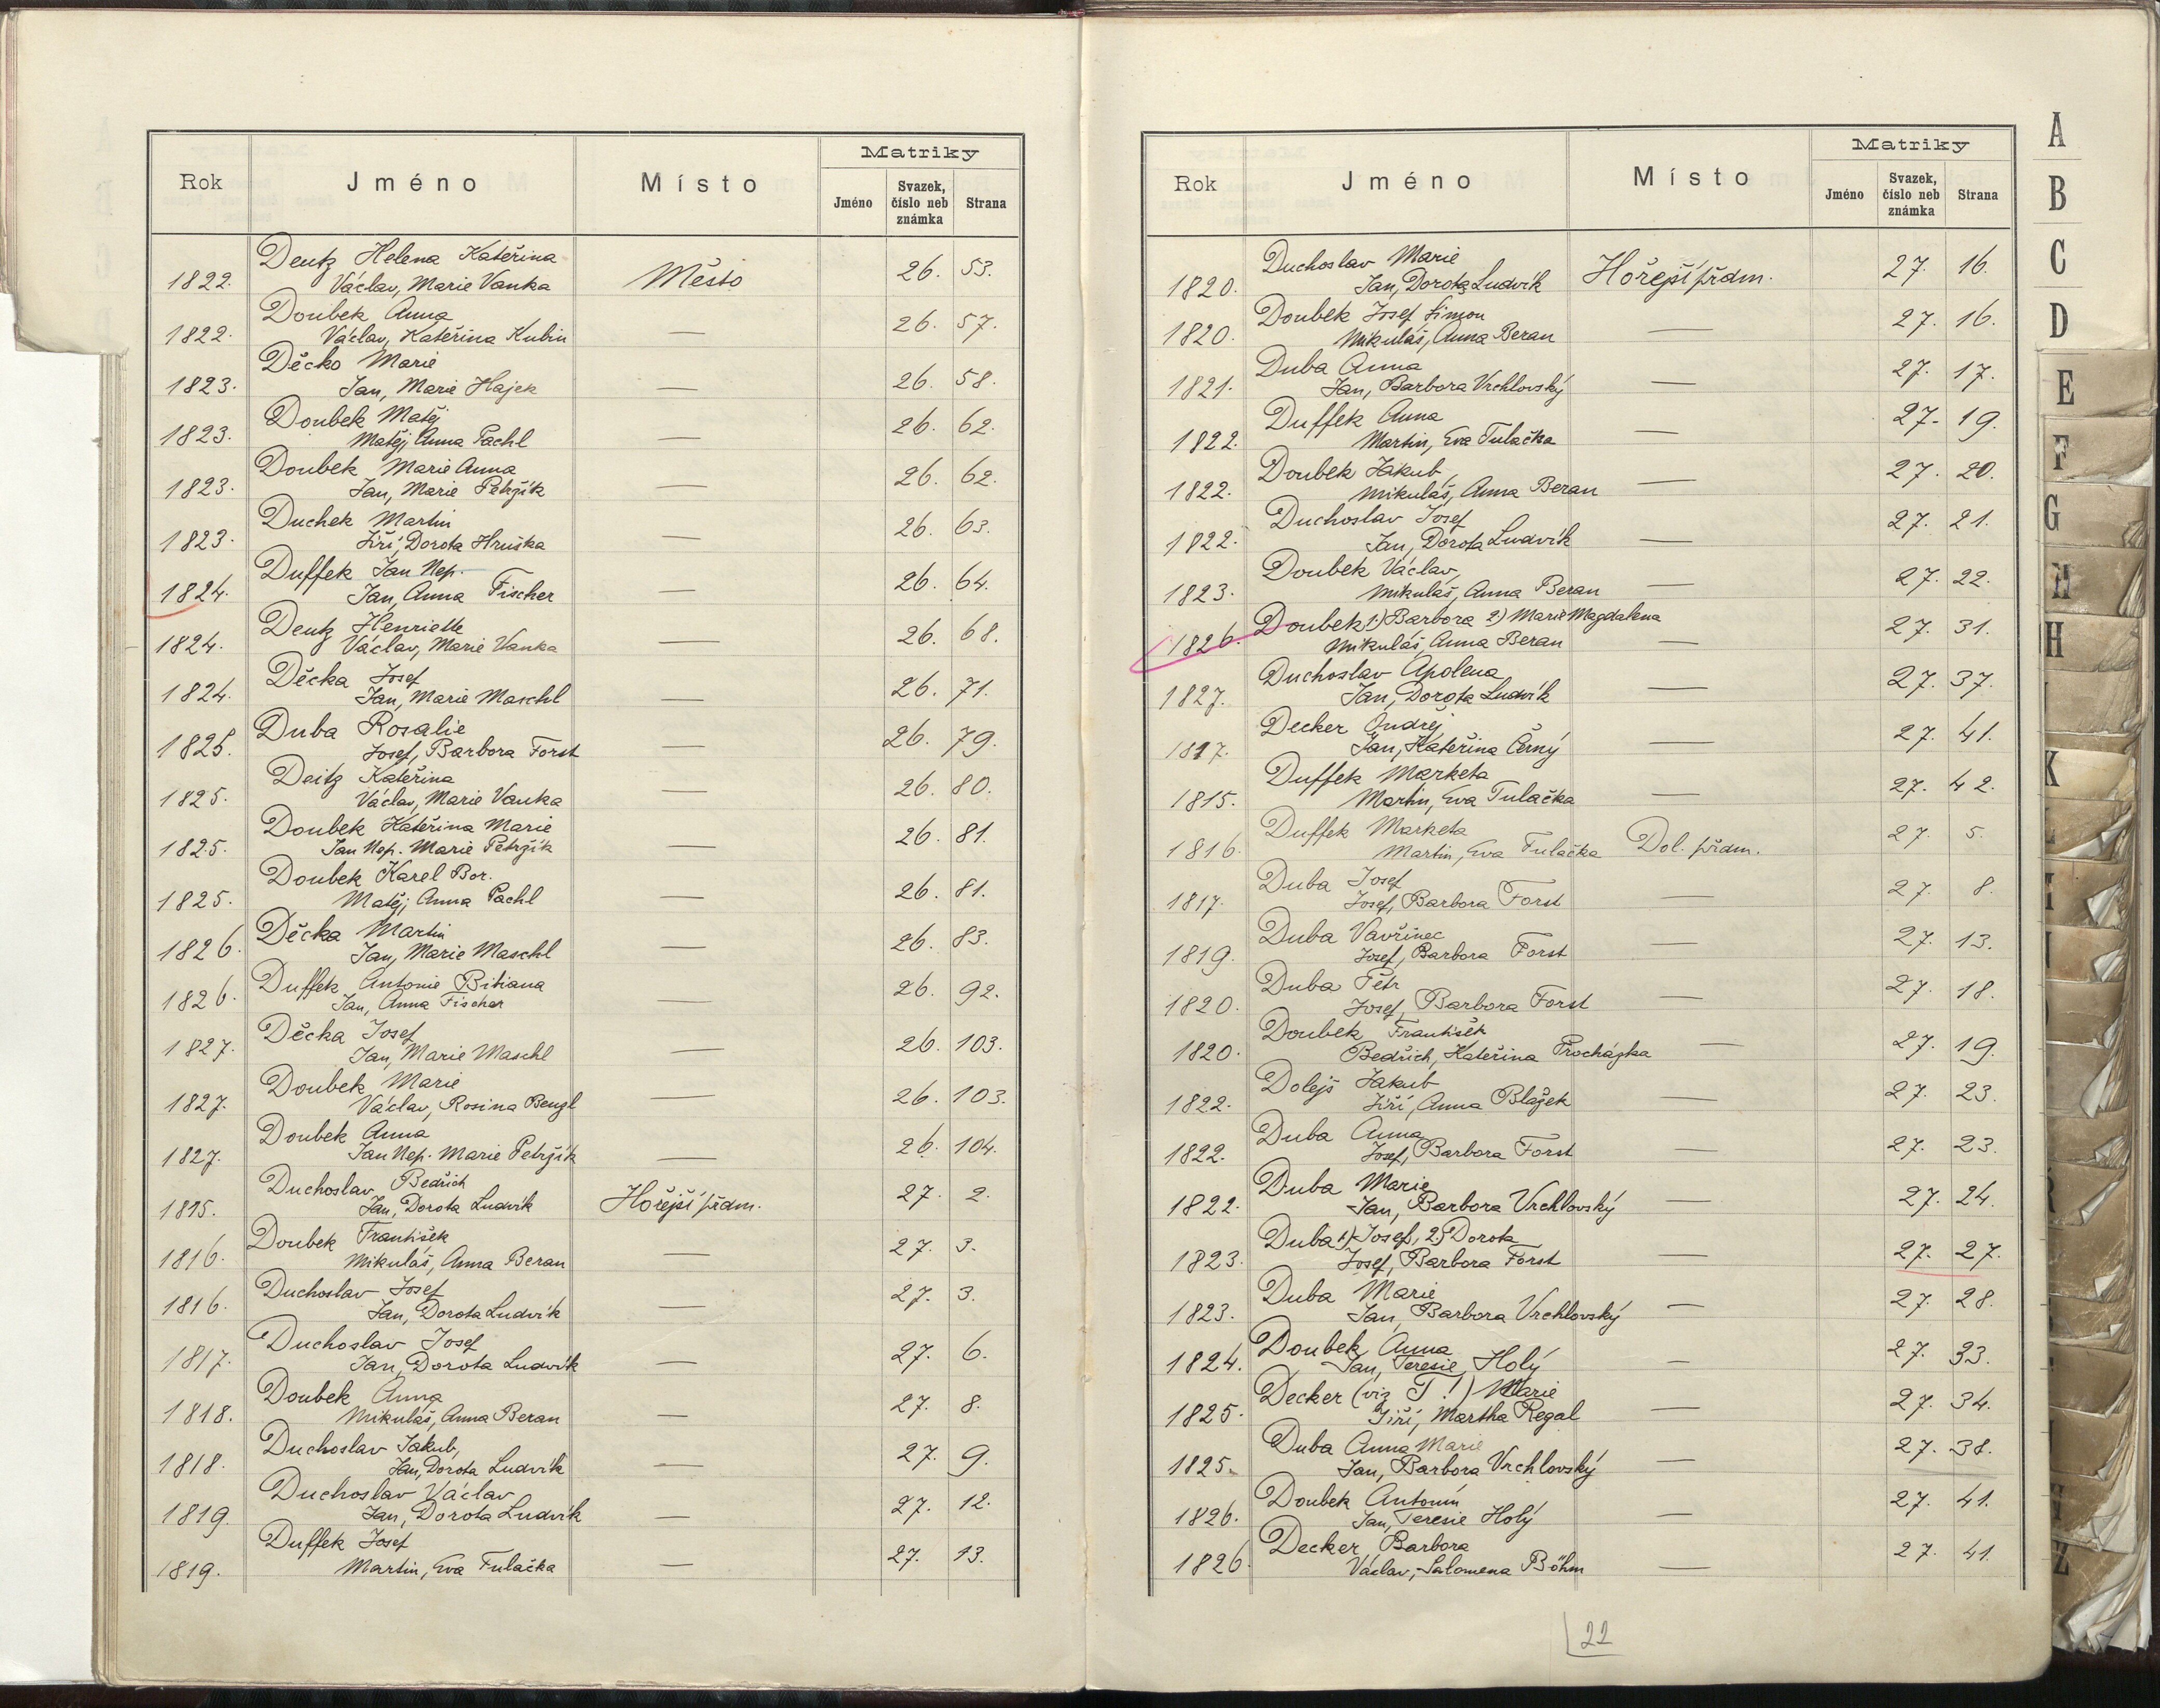 Rok Jméno Místo Matriky
Jméno Svazek, číslo neb známka Strana
Deutz Helena Kateřina
1822. Václav, Marie Vanka Město 26. 53.
Doubek Anna
1822. Václav, Kateřina Kubin — 26. 57.
Děcko Marie
1823. Jan, Marie Hajek — 26. 58.
Doubek Matěj
1823. Matěj, Anna Pachl — 26. 62.
Doubek Marie Anna
1823. Jan, Marie Petržík — 26. 62.
Duchek Martin
1823. Jiří, Dorota Hruška — 26. 63.
Duffek Jan Nep.
1824. Jan, Anna Fischer — 26. 64.
Deutz Henriette
1824. Václav, Marie Vanka — 26. 68.
Děcka Josef
1824. Jan, Marie Maschl — 26. 71.
Duba Rosalie
1825. Josef, Barbora Forst — 26. 79.
Deitz Kateřina
1825. Václav, Marie Vanka — 26. 80.
Doubek Kateřina Marie
1825. Jan Nep. Marie Petržík — 26. 81.
Doubek Karel Bor.
1825. Matěj, Anna Pachl — 26. 81.
Děcka Martin
1826. Jan, Marie Maschl — 26. 83.
Duffek Antonie Bibiana
1826. Jan, Anna Fischer — 26. 92.
Děcka Josef
1827. Jan, Marie Maschl — 26. 103.
Doubek Marie
1827. Václav, Rosina Bengl — 26. 103.
Doubek Anna
1827. Jan Nep. Marie Petržík — 26. 104.
Duchoslav Bedřich
1815. Jan, Dorota Ludvík Hořejší předm. 27. 2.
Doubek František
1816. Mikuláš, Anna Beran — 27. 3.
Duchoslav Josef
1816. Jan, Dorota Ludvík — 27. 3.
Duchoslav Josef
1817. Jan, Dorota Ludvík — 27. 6.
Doubek Anna
1818. Mikuláš, Anna Beran — 27. 8.
Duchoslav Jakub,
1818. Jan, Dorota Ludvík — 27. 9.
Duchoslav Václav
1819. Jan, Dorota Ludvík — 27. 12.
Duffek Josef
1819. Martin, Eva Tulačka — 27. 13.
Rok Jméno Místo Matriky
Jméno Svazek, číslo neb známka Strana
Duchoslav Marie
1820. Jan, Dorota Ludvík Hořejší předm. 27. 16.
Doubek Josef Šimon
1820. Mikuláš, Anna Beran — 27. 16.
Duba Anna
1821. Jan, Barbora Vrchlovský — 27. 17.
Duffek Anna
1822. Martin, Eva Tulačka — 27. 19.
Doubek Jakub
1822. Mikuláš, Anna Beran — 27. 20.
Duchoslav Josef
1822. Jan, Dorota Ludvík — 27. 21.
Doubek Václav
1823. Mikuláš, Anna Beran — 27. 22.
Doubek 1) Barbora 2) Marie Magdalena
1826. Mikuláš, Anna Beran — 27. 31.
Duchoslav Apolena
1827. Jan, Dorota Ludvík — 27. 37.
Decker Ondřej
1817. Jan, Kateřina Černý — 27. 41.
Duffek Marketa
1815. Martin, Eva Tulačka — 27. 42.
Duffek Marketa
1816. Martin, Eva Tulačka Dol. předm. 27. 5.
Duba Josef
1817. Josef, Barbora Forst — 27. 8.
Duba Vavřinec
1819. Josef, Barbora Forst — 27. 13.
Duba Petr
1820. Josef, Barbora Forst — 27. 18.
Doubek František
1820. Bedřich, Kateřina Procházka — 27. 19.
Dolejš Jakub
1822. Jiří, Anna Blažek — 27. 23.
Duba Anna
1822. Josef, Barbora Forst — 27. 23.
Duba Marie
1822. Jan, Barbora Vrchlovský — 27. 24.
Duba 1) Josef, 2) Dorota
1823. Josef, Barbora Forst — 27. 27.
Duba Marie
1823. Jan, Barbora Vrchlovský — 27. 28.
Doubek Anna
1824. Jan, Teresie Holý — 27. 33.
Decker (viz T!) Marie
1825. Jiří, Martha Regal — 27. 34.
Duba Anna Marie
1825. Jan, Barbora Vrchlovský — 27. 38.
Doubek Antonín
1826. Jan, Teresie Holý — 27. 41.
Decker Barbora
1826. Václav, Salomena Böhm — 27. 41.
22
A
B
C
D
E
F
G
H
H
K